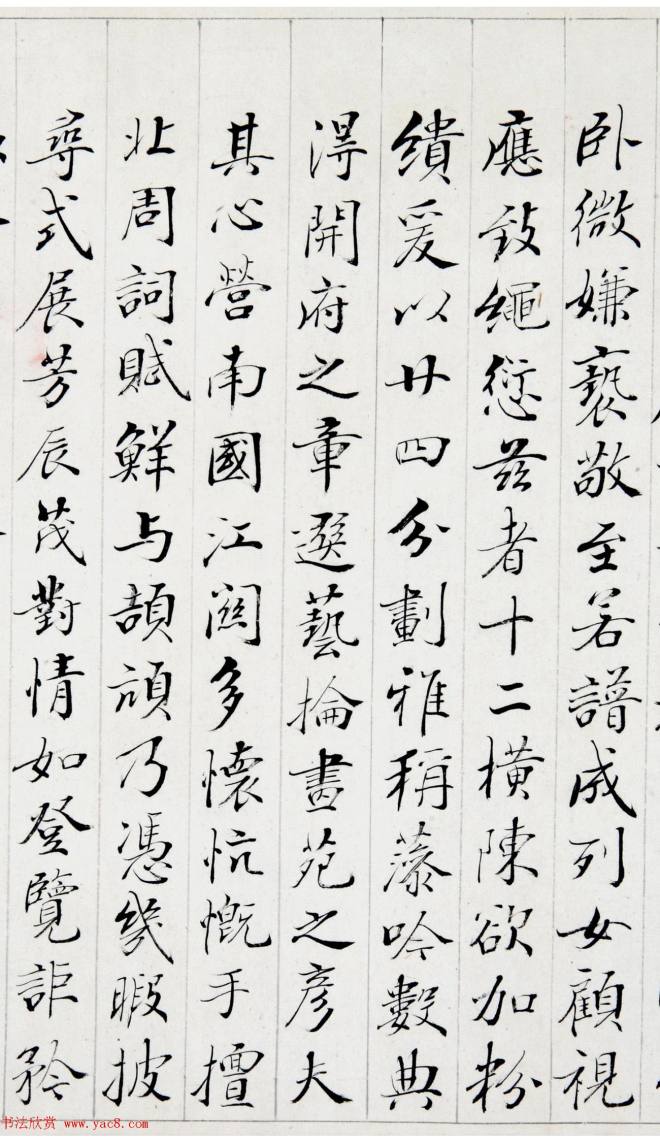 卧微嫌褻敬至若譜成列女顧視
應致繩愆茲者十二橫陳欲加粉
繢爰以廿四分劃雅稱藻吟數典
得開府之章選藝掄畫苑之彥夫
其心營南國江關多懷忼慨手擅
北周詞賦鮮与頡頏乃憑幾暇披
尋式展芳辰茂對情如登覽詎矜
书法欣赏 www.yac8.com